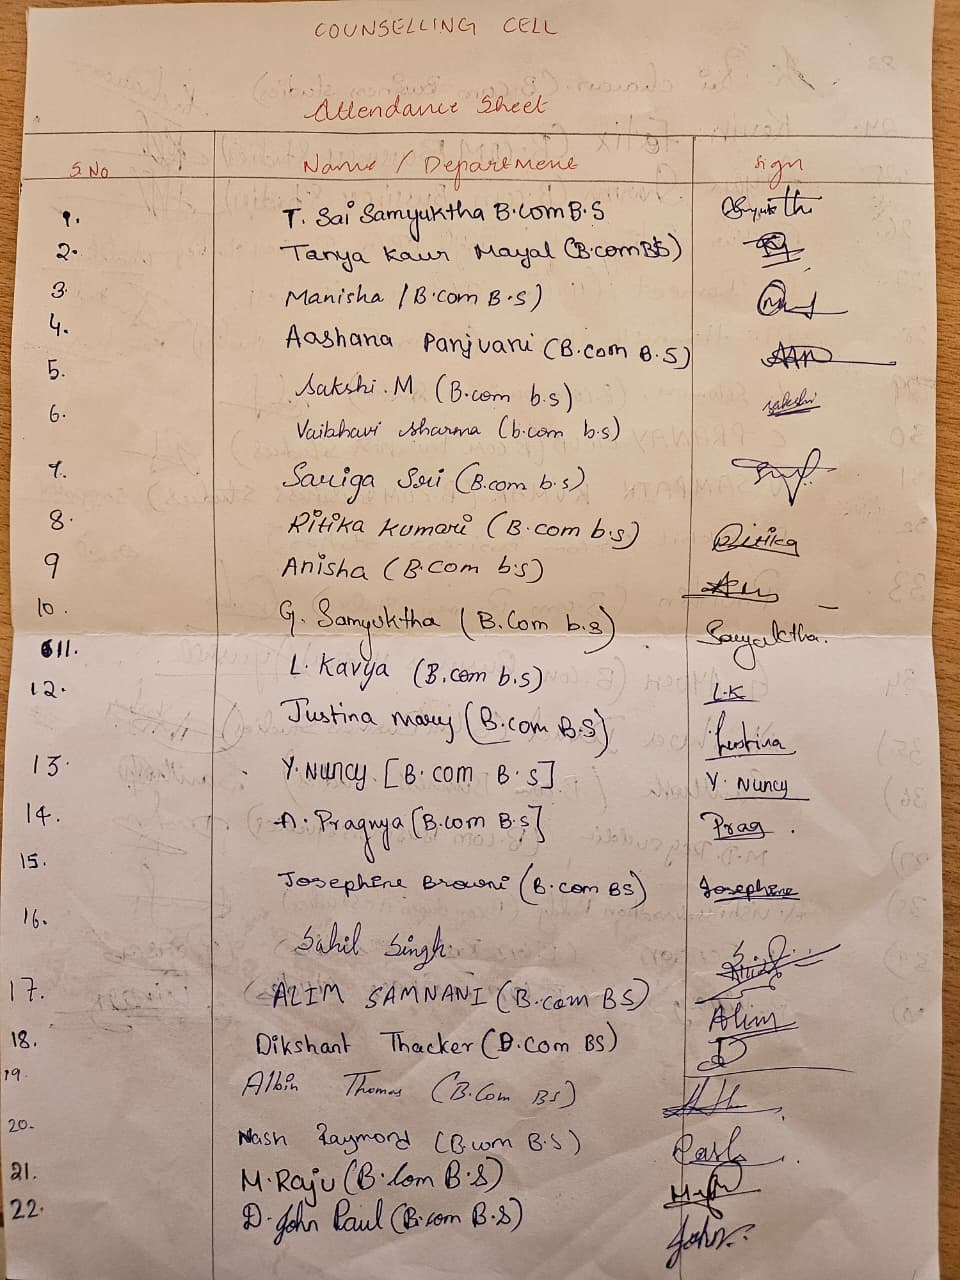 COUNSELLING CELL
Attendance Sheet
S.No Name / Department Sign
1. T. Sai Samyuktha B.com B.S
2. Tanya Kaur Mayal (B.com BS)
3. Manisha (B.com B.S)
4. Aashana Panjvani (B.com B.S)
5. Sakshi.M (B.com b.s) Sakshi
6. Vaibhavi Sharma (b.com b.s)
7. Sariga Sri (B.com b.s)
8. Ritika Kumari (B.com b.s) Ritika
9 Anisha (B.com b.s)
10. G. Samyuktha (B.Com b.s) Samyuktha.
11. L. Kavya (B.com b.s) L.K
12. Justina Mary (B.com B.S) Justina
13. Y. Nuncy [B.com B.S] Y. Nuncy
14. A. Pragnya [B.com B.S] Prag.
15. Josephine Browni (B.com BS) Josephine
16. Sahil Singh
17. ALIM SAMNANI (B.com BS) Alim
18. Dikshant Thacker (B.Com BS) D
19. Albin Thomas (B.Com BS)
20. Nash Raymond (B.com B.S)
21. M. Raju (B.Com B.S)
22. D. John Paul (B.com B.S) John